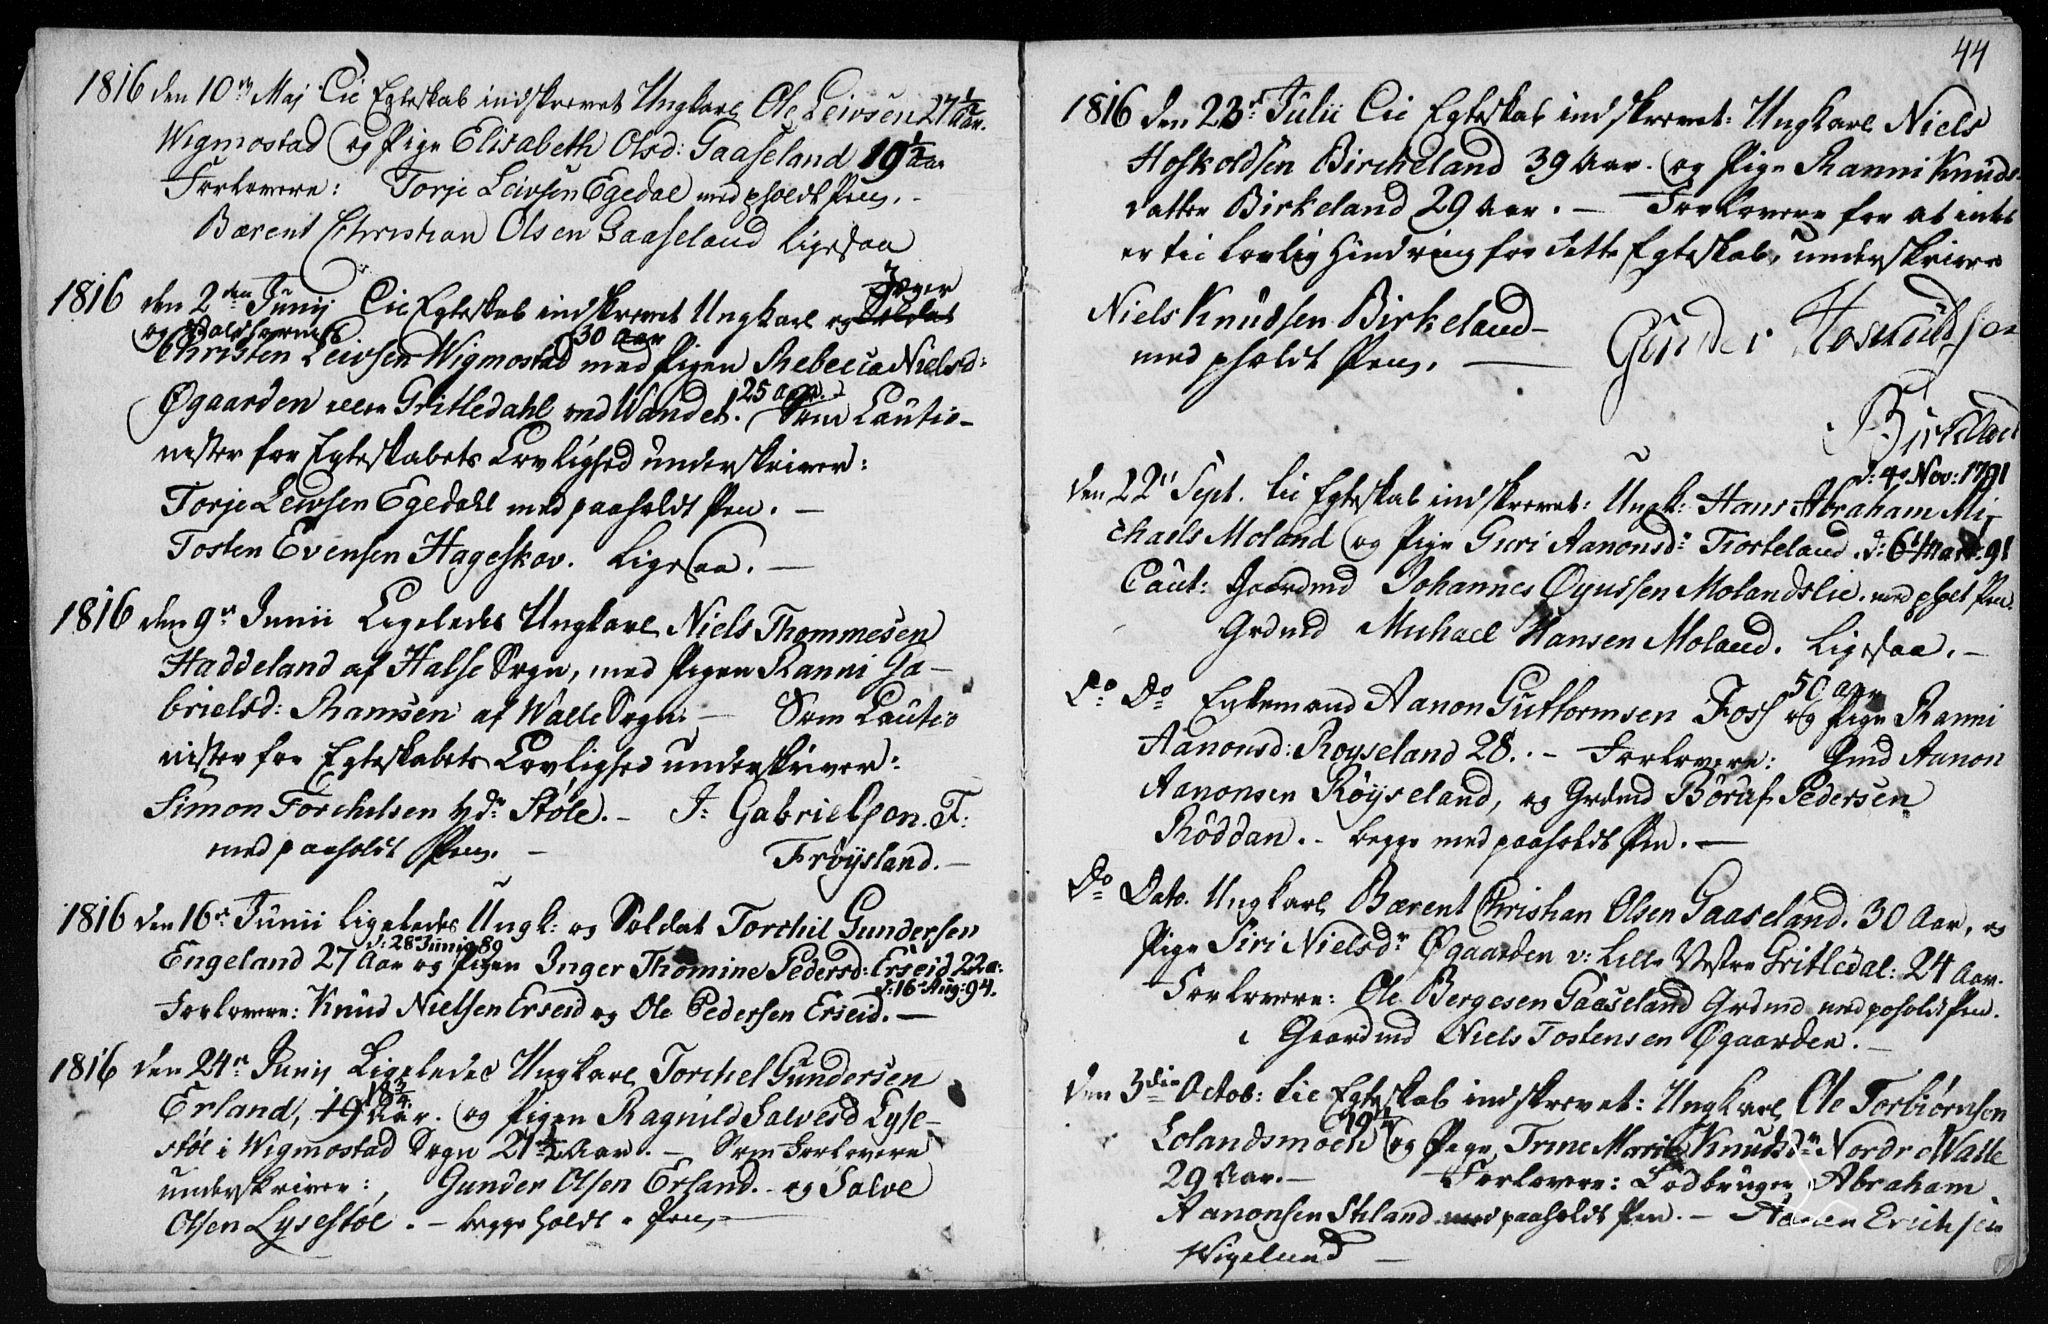 1816 den 10de Maj Til Egteskab indskrevet Ungkarl Ole Leivsen 27 1/2 Aar.
Wigmostad og Pige Elisabeth Olsd: Gaaseland 19 1/2 Aar
Forlovere: Torje Leivsen Egedal med pholdt Pen. -
Bærent Christian Olsen Gaaseland ligesaa
1816 den 2den Junij Til Egteskab indskrevet Ungkarl og Soldat Jæger
og Odalsbaarne
Christen Leivsen Wigmostad 30 Aar med Pigen Rebecca Nielsd:
Øgaarden Gritledahl ved Wandet. 25 Aar. Som Cautio-
nister for Egteskabets Lovlighed underskriver:
Torje Leivsen Egedahl med paaholdt Pen. -
Tosten Evensen Hageskov. Ligesaa. -
1816 den 9de Junii Ligeledes Ungkarl Niels Thommesen
Haddeland af Halse Sogn, med Pigen Ranni Ga-
brielsd: Ramsøen af Walle Sogn. - Som Cautio
nister for Egteskabets Lovlighed underskriver:
Simon Torchelsen Støle. - J: Gabrielson. F:
med paaholdt Pen. - Frøysland. -
1816 den 16de Junii ligeledes Ungk: og Soldat Torchil Gundersen
d: 28de Junii 89
Engeland 27 Aar og Pigen Inger Thomine Pedersd: Erseid 22 a:
d: 16de Aug: 94.
Forlovere: Knud Nielsen Erseid og Ole Pedersen Erseid. -
1816 den 24de Junij Ligeledes Ungkarl Torchel Gundersen
18 3/4
Erland, 19 Aar. og Pigen Ragnild Salvesd Lyse-
støl i Wigmostad Sogn 21 1/2 Aar. - Som Forlovere
underskriver: Gunder Olsen Erland. - og Salve
Olsen Lysestøl. - begge holdt Pen -
44
1816 den 23de Julii Til Egteskab indskrevet: Ungkarl Niels
Hoskoldsen Birckeland 39 Aar. og Pige Ranni Knuds-
datter Birkeland 29 Aar. - Forlovere for at intet
er til lovlig Hindring for dette Egteskab, underskriver
Niels Knudsen Birkeland -
med pholdt Pen. - Gunder
Birkeland
d: 4de Nov: 1791
den 22de Sept. til Egteskab indskrevet: Ungk: Hans Abraham Mi-
chaels Moland og Pige Guri Aanonsd: Torkeland. d: 6te Marti. 91
Caut: Gaardmd Johannes Øyussen Molandslie. med phol Pen.
Grdmd Michael Hansen Moland. Ligesaa. -
Do Do Enkemand Aanon Guttormsen Foss 50 Aar og Pige Ranni
Aanonsd: Royseland 28. - Forlovere: Gmd Aanon
Aanonsen Røyseland, og Grdmd Børuf Pedersen
Røddan. - begge med paaholdt Pen. -
Do Dato. Ungkarl Bærent Christian Olsen Gaaseland. 30 Aar, og
Pige Siri Nielsdr Øgaarden v: Lille Vestre Gritledal: 24 Aar.
Forlovere: Ole Bergesen Gaaseland Grdmd med paholdt Pen.
Gaardmd Niels Tostensen Øgaarden. -
den 3die Octob: til Egteskab indskrevet: Ungkarl Ole Torbiørnsen
Lolandsmoen og Pige Trine Marie Knudsdr Nordre Walle
29 Aar. - Forlovere: Lodbruger Abraham
Aanonsen med paaholdt Pen. - Erichsen
Wigeland -